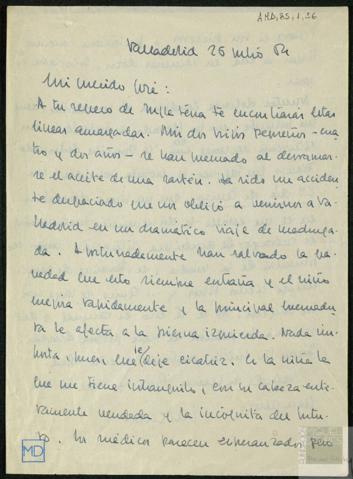 AMD,85,1,26
Valladolid 25 julio 54
Mi querido José:
A tu regreso de Inglaterra te encontrarás estas
líneas amargadas. Mis dos hijos pequeños - cua-
tro y dos años - se han quemado al derramar-
se el aceite de una sartén. Ha sido un acciden-
te desgraciado que nos obligó a venirnos a Va-
lladolid en un dramático viaje de madruga-
da. Afortunadamente han salvado la gra-
vedad que esto siempre entraña y el niño
mejora rapidamente y la principal quemadu-
ra le afecta a la pierna izquierda. Nada im-
porta, pues, que le deje cicatriz. Es la niña la
que me tiene intranquilo, con su cabeza ente-
ramente vendada y la incógnita del futu-
ro. Los médicos parecen esperanzados pero
MD